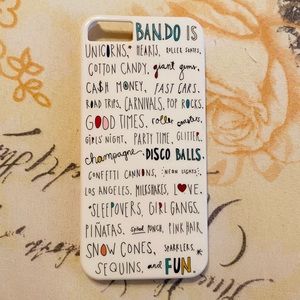 BAN.DO IS
UNICORNS,* HEARTS, ROLLER SKATES,
COTTON CANDY, giant gems,
CA$H MONEY, FAST CARS,
ROAD TRIPS, CARNIVALS, POP ROCKS,
GOOD TIMES, roller coasters,
GIRLS' NIGHT, PARTY TIME, GLITTER,
champagne, DISCO BALLS,
CONFETTI CANNONS, NEON LIGHTS,
LOS ANGELES, MILKSHAKES, LOVE,
*SLEEPOVERS, GIRL GANGS,
PIÑATAS, spiked PUNCH, PINK HAIR,
SNOW CONES, SPARKLERS,
SEQUINS, and FUN.